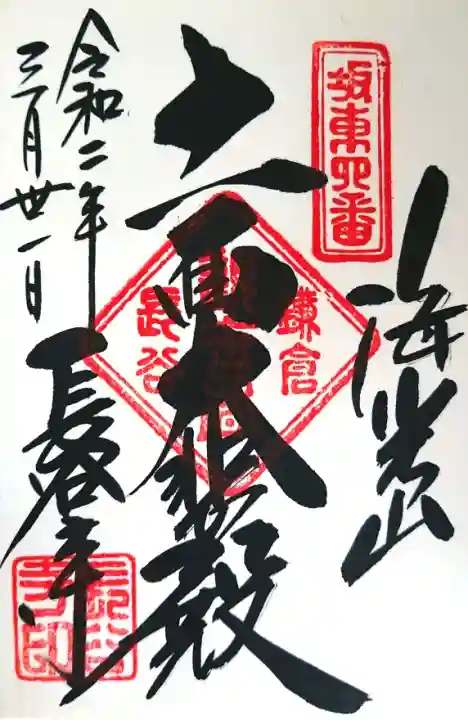 坂東四番
海光山
十一面大悲殿
鎌倉
長谷
長谷寺
令和二年
三月卅一日
長谷寺印